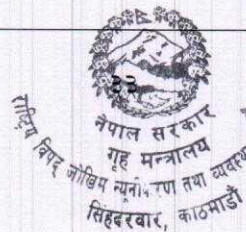 ३२
नेपाल सरकार
गृह मन्त्रालय
राष्ट्रिय विपद् जोखिम न्यूनीकरण तथा व्यवस्था
सिंहदरबार, काठमाडौं